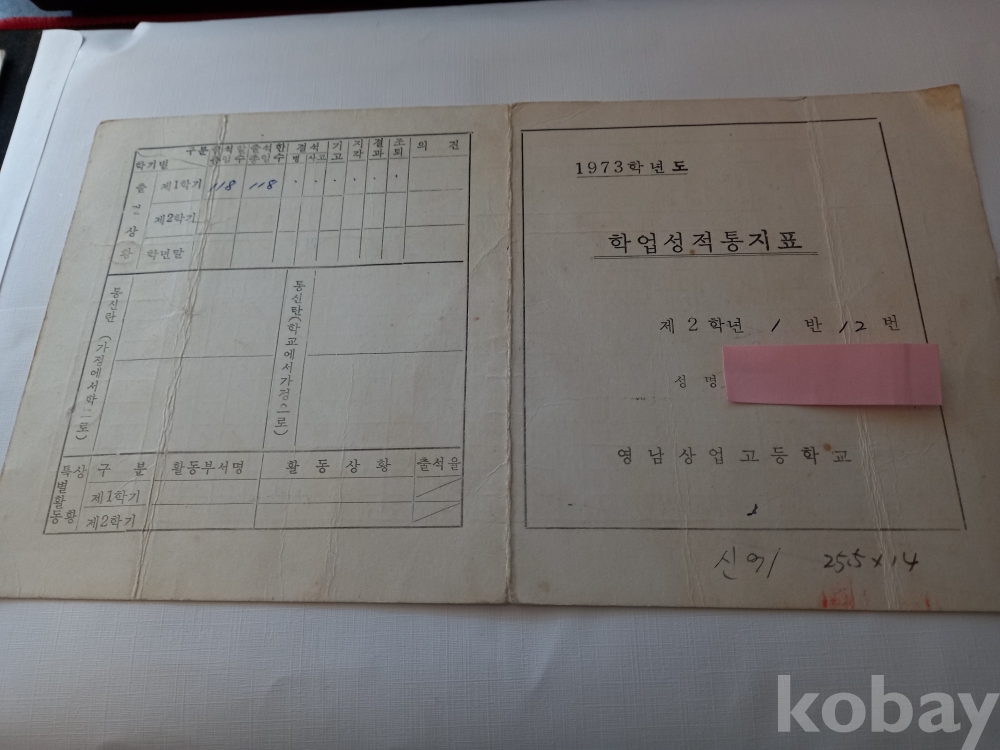 구분 출석일수 출석한일수 결석 기고 지각 결과 조퇴 의견
학기별 병 사고
출 제1학기 118 118
제2학기
상
황 학년말
통신란 (가정에서 학교로)
통신란 (학교에서 가정으로)
특별활동상황 구분 활동부서명 활동상황 출석율
제1학기
제2학기
1973학년도
학업성적통지표
제 2 학년 1 반 12 번
성명
영남상업고등학교
25.5 x 14
kobay